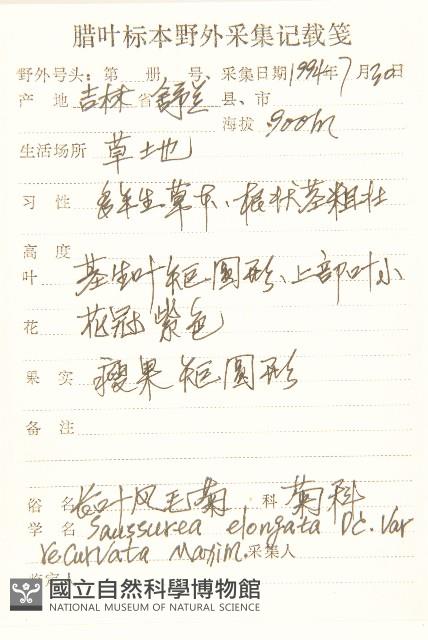 腊叶标本野外采集记载笺
野外号头：第 册， 号、采集日期1994年7月30日
产 地 吉林 省 舒兰 县、市
海拔 900m
生活场所 草地
习 性 多年生草本、根状茎粗壮
高 度
叶 基生叶矩圆形、上部叶小
花 花冠紫色
果 实 瘦果矩圆形
备 注
俗 名 长叶风毛菊 科 菊科
学 名 Saussurea elongata DC. var
recurvata Maxim. 采集人
鉴定人
國立自然科學博物館
NATIONAL MUSEUM OF NATURAL SCIENCE